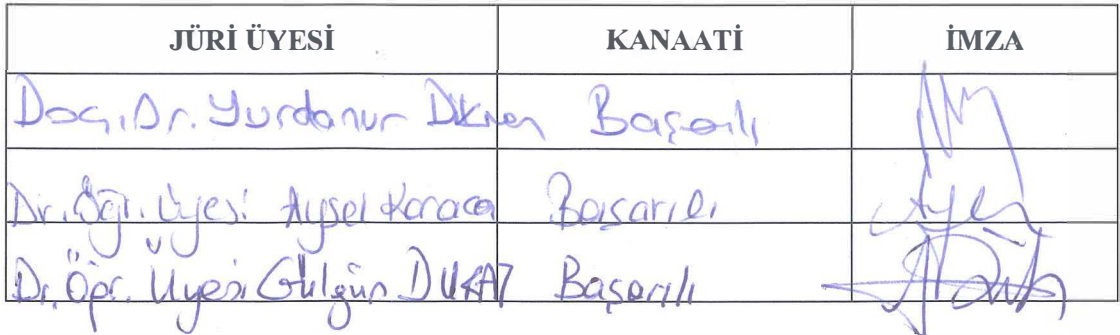 JÜRİ ÜYESİ KANAATİ İMZA
Doç. Dr. Yurdanur Dikmen Başarılı
Dr. Öğr. Üyesi Aysel Karaca Başarılı
Dr. Öğr. Üyesi Gülgün DURAT Başarılı